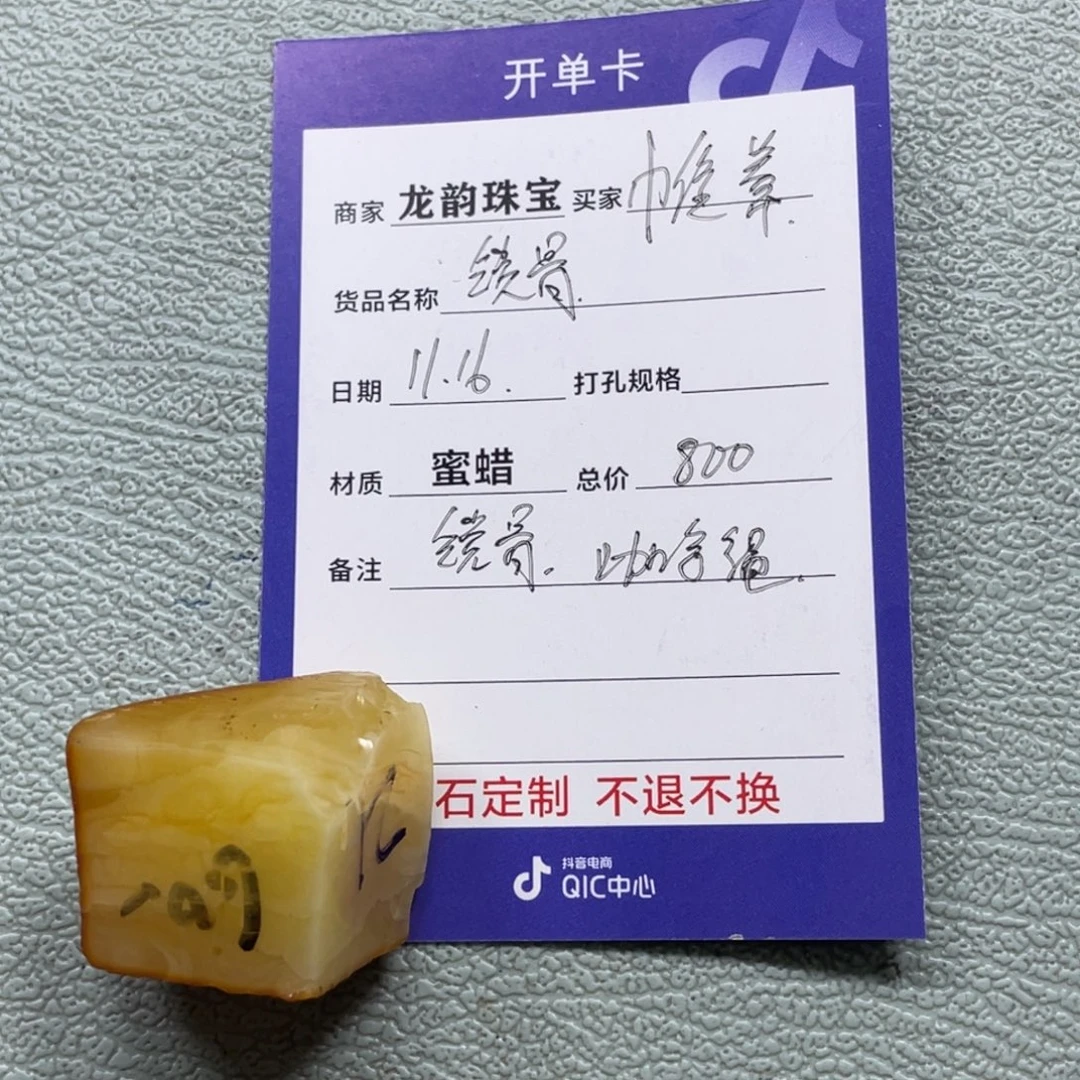 开单卡
商家 龙韵珠宝 买家
货品名称 镜骨
日期 11.16. 打孔规格
材质 蜜蜡 总价 800
备注 镜骨. 手绳.
石定制 不退不换
抖音电商
QIC中心